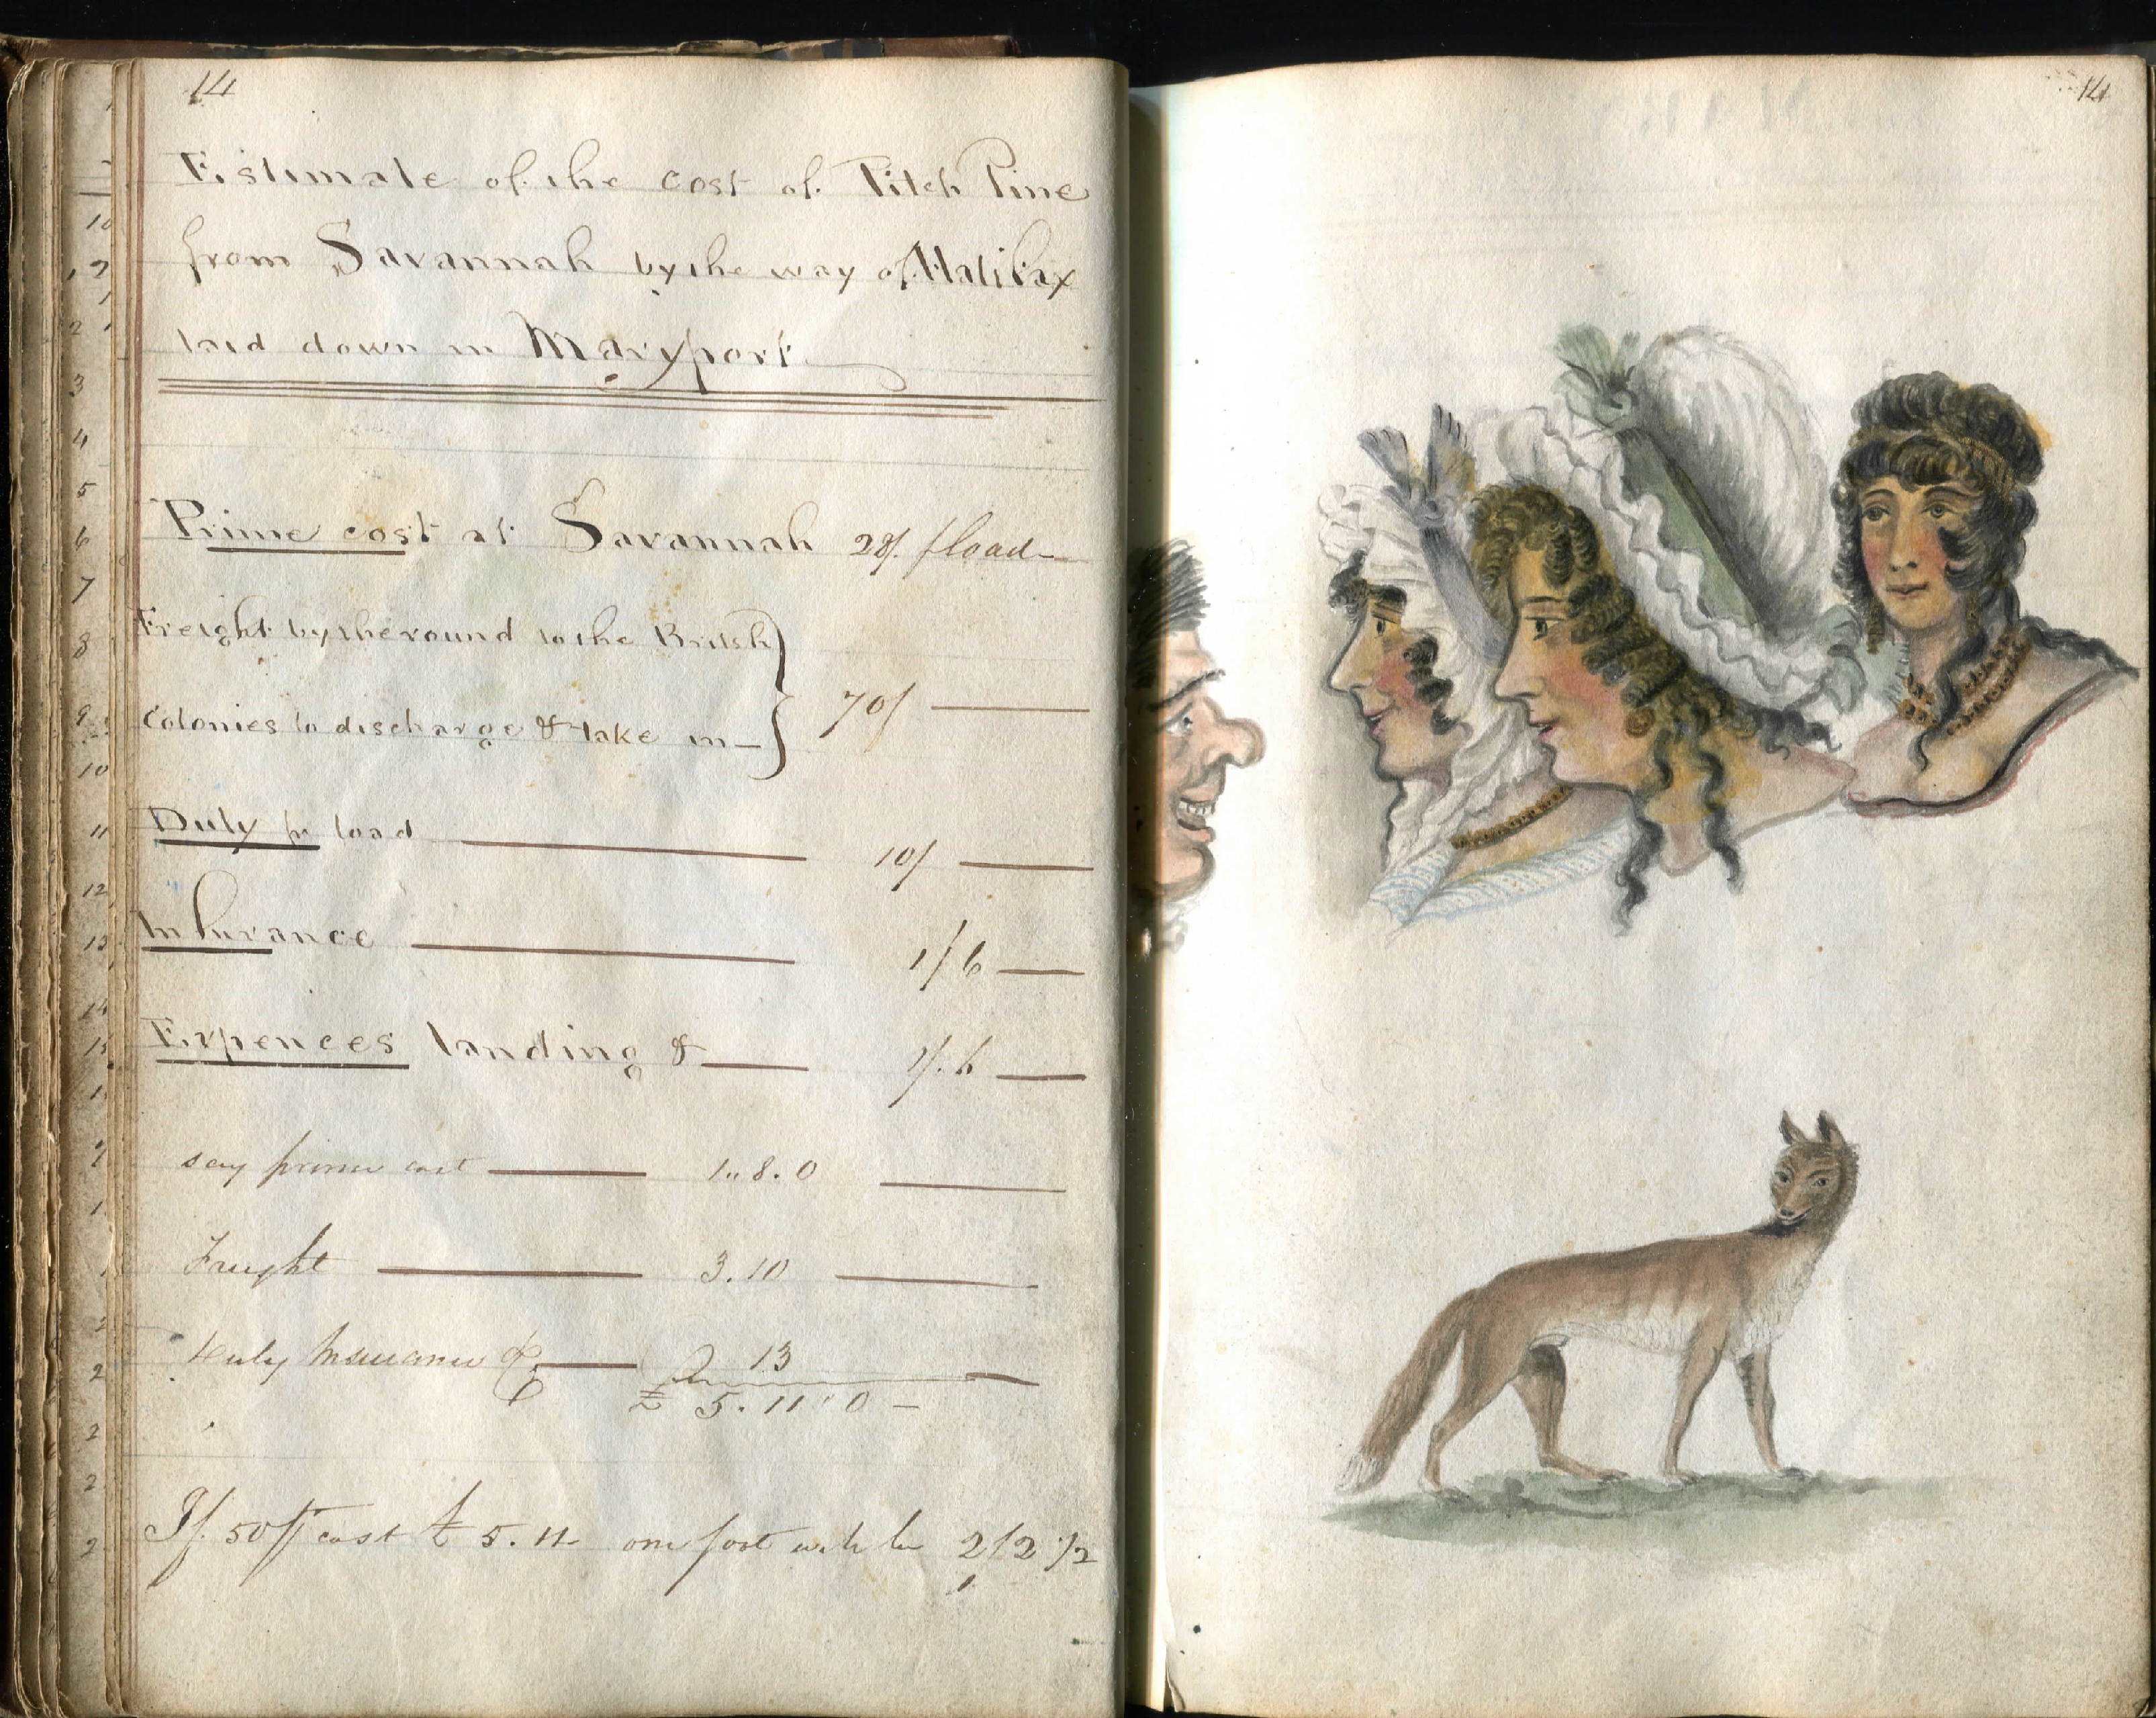 14
Estimate of the cost of Pitch Pine
from Savannah by the way of Halifax
laid down in Maryport
Prime cost at Savannah 28/. load
Freight by the round to the British
Colonies to discharge & take in 70/
Duty pr load 10/
Insurance 1/6
Expences landing & 1/.6
say prime cost 1..8.0
Freight 3.10
Duty Insurance & 13
£ 5.11.0
If 50 ft cost £ 5.11 one foot will be 2/2 1/2
14
10
3
4
5
6
7
8
9
10
11
12
13
14
15